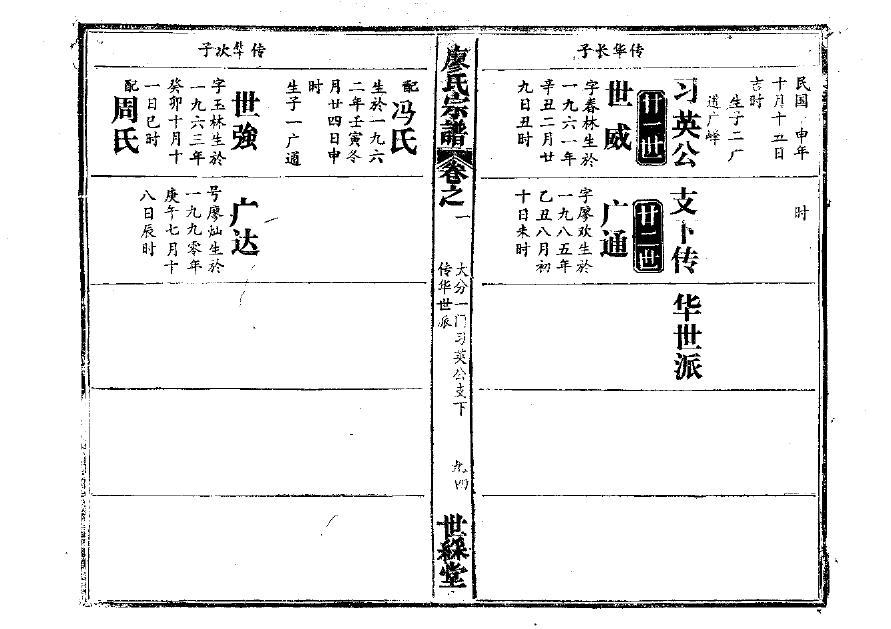 民国 申年
十月十五日
吉时
生子二广
道广峰
时
习英公支下传华世派
传华长子
廿一世
世威
字春林生於
一九六一年
辛丑二月廿
九日丑时
廿二世
广通
字廖欢生於
一九八五年
乙丑八月初
十日未时
廖氏宗譜
卷之一
大分一门习英公支下
传华世派
九四
世綵堂
配冯氏
生於一九六
二年壬寅冬
月廿四日申
时
生子一广通
传华次子
世強
字玉林生於
一九六三年
癸卯十月十
一日巳时
配周氏
广达
号廖灿生於
一九九零年
庚午七月十
八日辰时